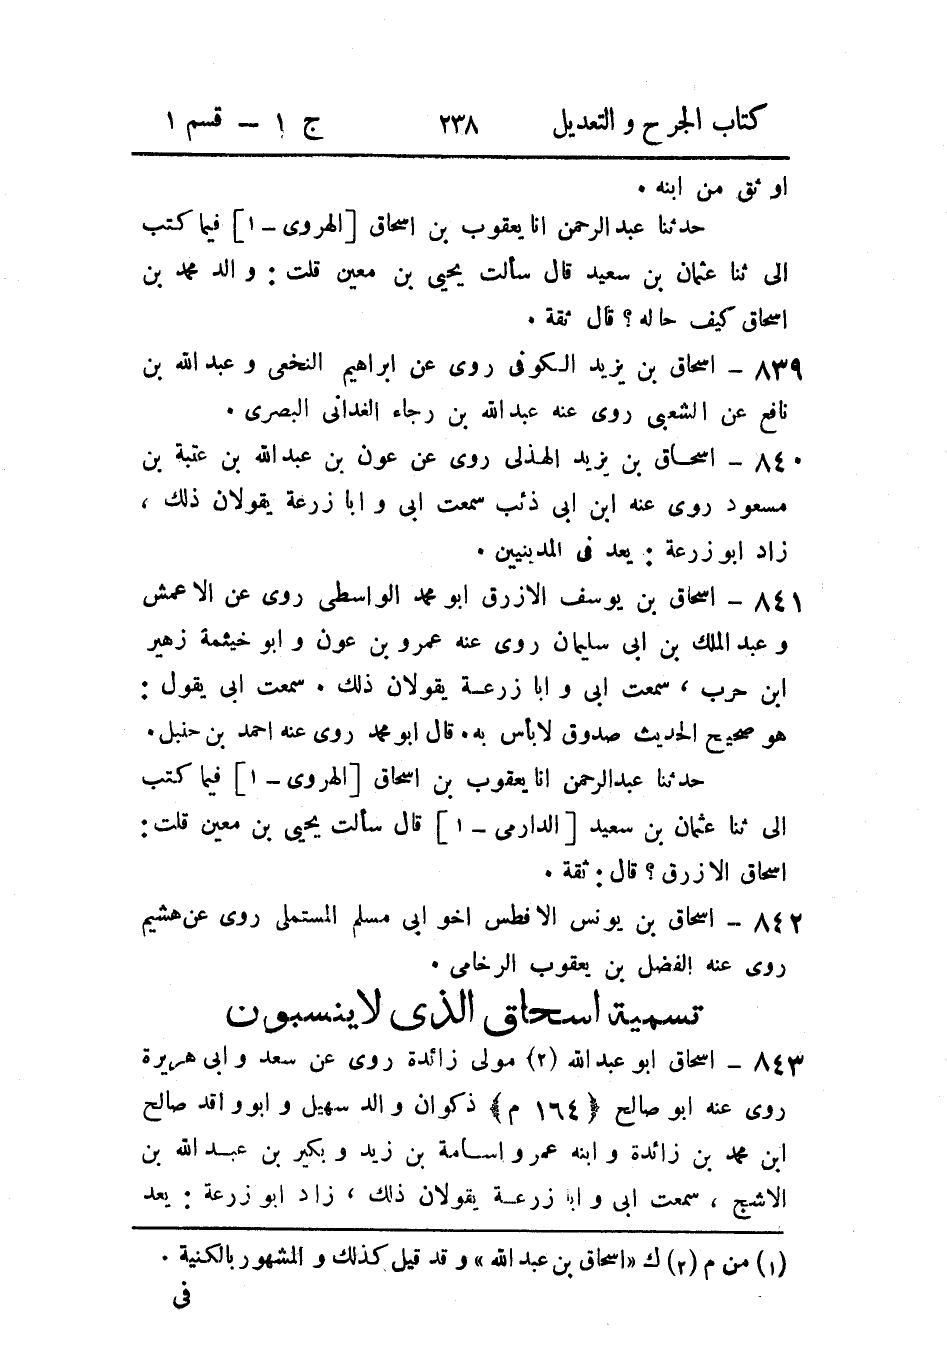 كتاب الجرح و التعديل ٢٣٨ ج ١ – قسم ١
او ثق من ابنه .
حدثنا عبد الرحمن انا يعقوب بن اسحاق [الهروى – ١] فيما كتب
الى ثنا عثمان بن سعيد قال سألت يحيى بن معين قلت : و الد محمد بن
اسحاق كيف حاله ؟ قال ثقة .
٨٣٩ – اسحاق بن يزيد الكوفى روى عن ابراهيم النخعى و عبد الله بن
نافع عن الشعبى روى عنه عبد الله بن رجاء الغدانى البصرى .
٨٤٠ – اسحاق بن يزيد الهذلى روى عن عون بن عبد الله بن عتبة بن
مسعود روى عنه ابن ابى ذئب سمعت ابى و ابا زرعة يقولان ذلك ،
زاد ابو زرعة : يعد فى المدينيين .
٨٤١ – اسحاق بن يوسف الازرق ابو محمد الواسطى روى عن الاعمش
و عبد الملك بن ابى سليمان روى عنه عمرو بن عون و ابو خيثمة زهير
ابن حرب ، سمعت ابى و ابا زرعة يقولان ذلك . سمعت ابى يقول :
هو صحيح الحديث صدوق لا بأس به . قال ابو محمد روى عنه احمد بن حنبل .
حدثنا عبد الرحمن انا يعقوب بن اسحاق [الهروى – ١] فيما كتب
الى ثنا عثمان بن سعيد [الدارمى – ١] قال سألت يحيى بن معين قلت :
اسحاق الازرق ؟ قال : ثقة .
٨٤٢ – اسحاق بن يونس الافطس اخو ابى مسلم المستملى روى عن هشيم
روى عنه الفضل بن يعقوب الرخامى .
تسمية اسحاق الذى لاينسبون
٨٤٣ – اسحاق ابو عبد الله (٢) مولى زائدة روى عن سعد و ابى هريرة
روى عنه ابو صالح ﴿ ١٦٤ م ﴾ ذكوان و الد سهيل و ابو و اقد صالح
ابن محمد بن زائدة و ابنه عمر و اسامة بن زيد و بكير بن عبد الله بن
الاشج ، سمعت ابى و ابا زرعة يقولان ذلك ، زاد ابو زرعة : يعد
(١) من م (٢) ك «اسحاق بن عبد الله» و قد قيل كذلك و المشهور بالكنية .
فى